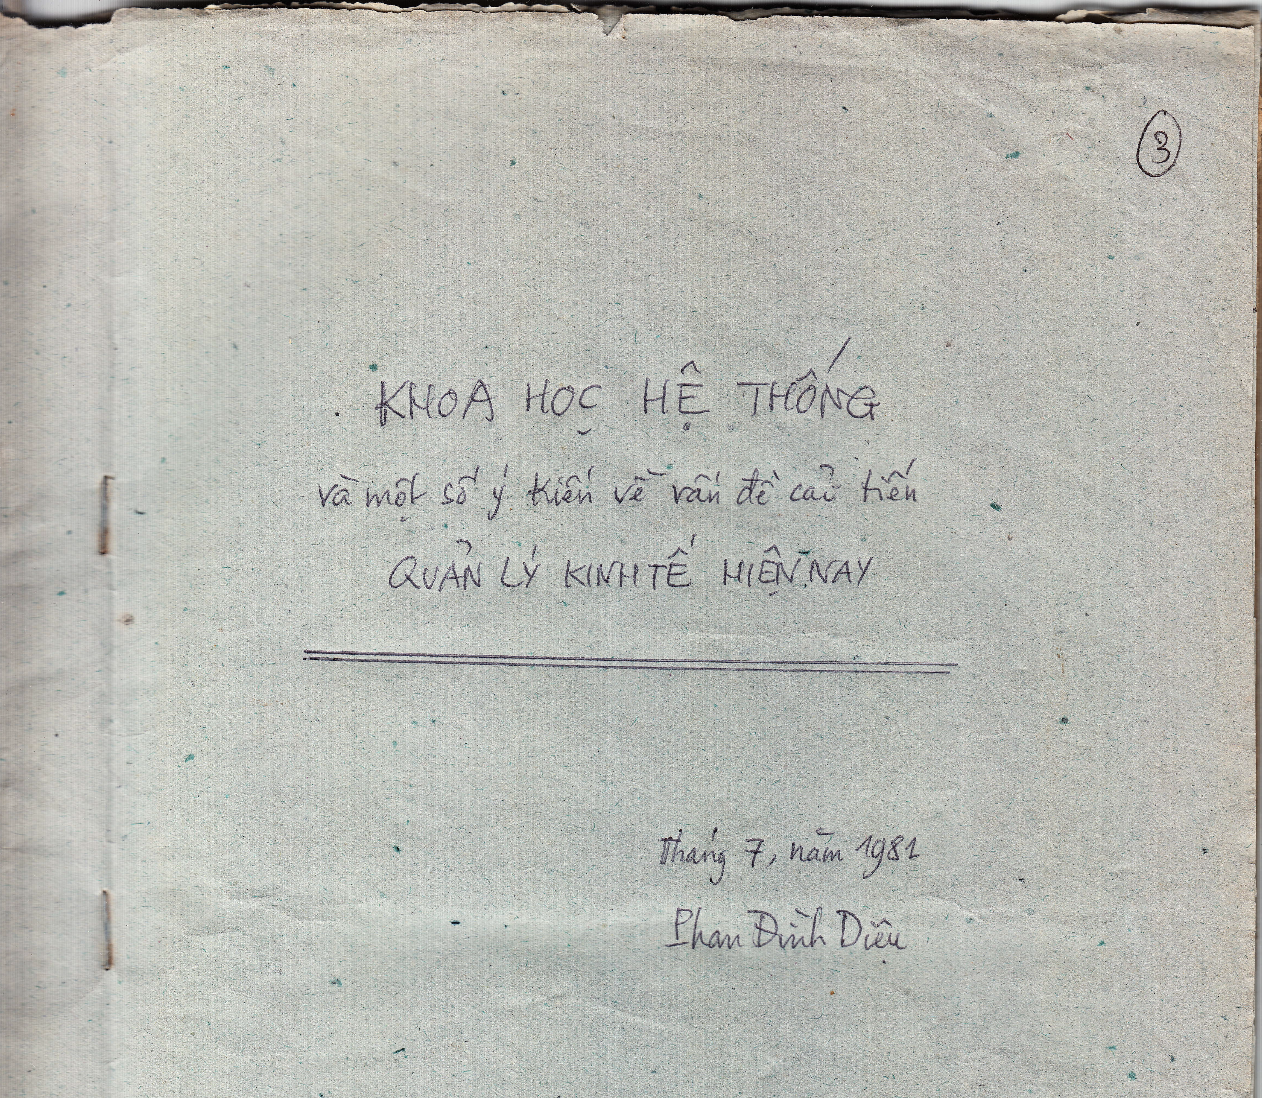 3
KHOA HỌC HỆ THỐNG
và một số ý kiến về vấn đề cải tiến
QUẢN LÝ KINH TẾ HIỆN NAY
Tháng 7, năm 1981
Phan Đình Diệu